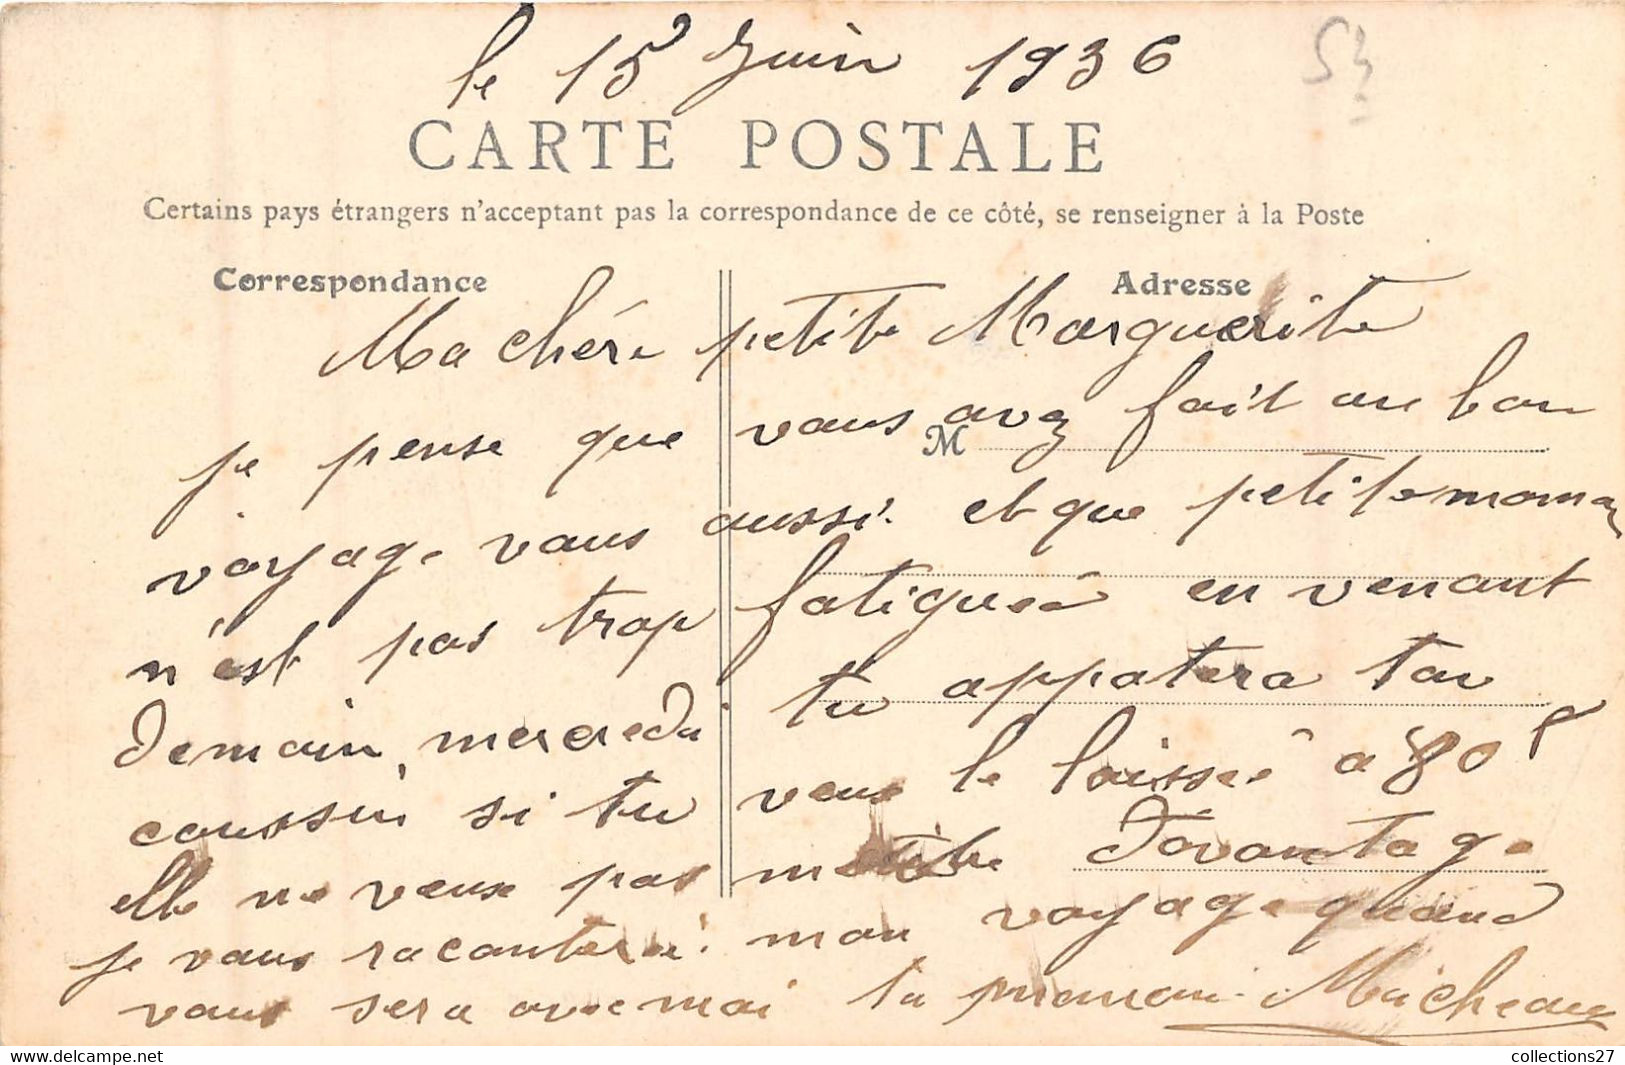 le 15 Juin 1936
53
CARTE POSTALE
Certains pays étrangers n'acceptant pas la correspondance de ce côté, se renseigner à la Poste
Correspondance
Adresse
Ma chére petite Marguerite
je pense que vous avez fait un bon
M
voyage vous aussi et que petite maman
n'est pas trop fatiguée en venant
Demain mercredi tu appatera ton
coussin si tu veux le laissé a 80 f
elle ne veux pas mettre davantage
je vous raconterai mon voyage quand
vous sera avec moi ta Micheau
collections27